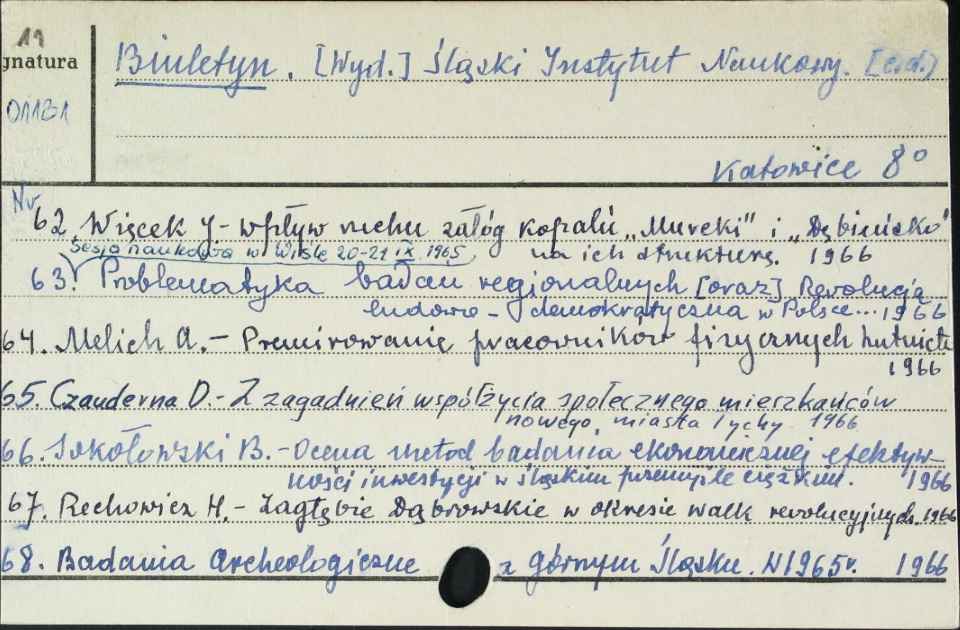 19
gnatura
Biuletyn. [Wyd.] Śląski Instytut Naukowy. [c.d.)
01181
Katowice 8°
Nr
62. Więcek J - wpływ ruchu załóg kopalń „Murcki" i „Dębieńsko"
na ich strukturę. 1966
Sesja naukowa w Wiśle 20-21 IX 1965
63. Problematyka badań regionalnych [oraz] Rewolucja
ludowo-demokratyczna w Polsce... 1966
64. Melich A. - Premiowanie pracowników fizycznych hutnictw
1966
65. Czauderna D. - Z zagadnień współżycia społecznego mieszkańców
nowego miasta Tychy 1966
66. Sokołowski B. - Ocena metod badania ekonomicznej efektyw-
ności inwestycji w śląskim przemyśle ciężkim. 1966
67. Rechowicz H. - Zagłębie Dąbrowskie w okresie walk rewolucyjnych. 1966
68. Badania Archeologiczne z górnym Śląsku. W 1965 r. 1966